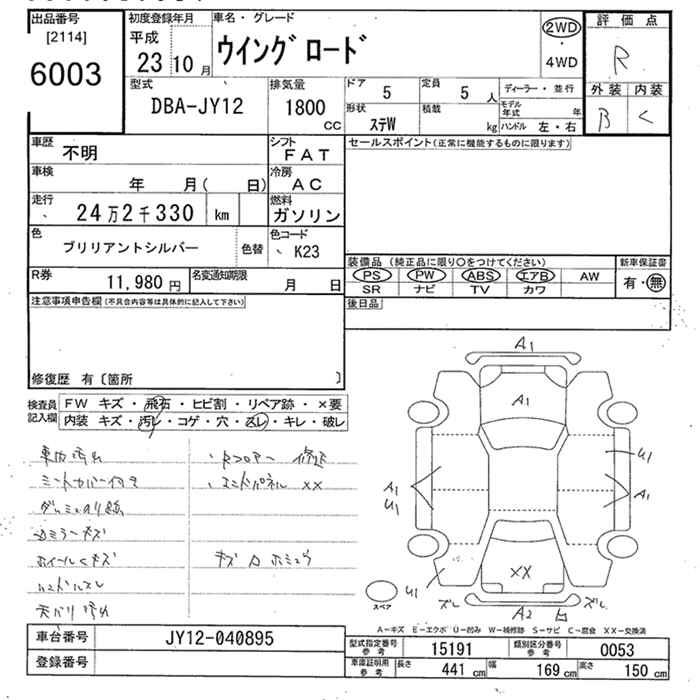 出品番号 [2114]
6003
初度登録年月 平成 23 10月
車名・グレード ウイングロード
2WD ・ 4WD
評価点 R
外装 B 内装 C
型式 DBA-JY12
排気量 1800 CC
ドア 5 定員 5 人
形状 ステW 積載 kg
ディーラー・並行
モデル年式 年
ハンドル 左・右
車歴 不明
シフト FAT
セールスポイント(正常に機能するものに限ります)
車検 年 月( 日)
冷房 AC
走行 24万2千330 km
燃料 ガソリン
色 ブリリアントシルバー 色替
色コード K23
装備品(純正品に限り○をつけてください)
新車保証書 有・無
PS PW ABS エアB AW
SR ナビ TV カワ
R券 11,980円
名変通知期限 月 日
後日品
注意事項申告欄(不具合内容等は具体的に記入して下さい)
修復歴 有〔箇所 〕
検査員記入欄
FW キズ・飛石・ヒビ割・リペア跡・×要
内装 キズ・汚レ・コゲ・穴・スレ・キレ・破レ
車内汚れ
シートカバー付き
ホイールキズ
ハンドルスレ
天バリ汚れ
修正
エンドパネル XX
A1
A1
A1 U1
U1
A1
XX
U1
ズレ
A2
ズレ
スペア
A-キズ E-エクボ U-凹み W-補修跡 S-サビ C-腐食 XX-交換済
車台番号 JY12-040895
登録番号
型式指定番号 参考 15191
類別区分番号 参考 0053
車庫証明用 参考 長さ 441 cm 幅 169 cm 高さ 150 cm